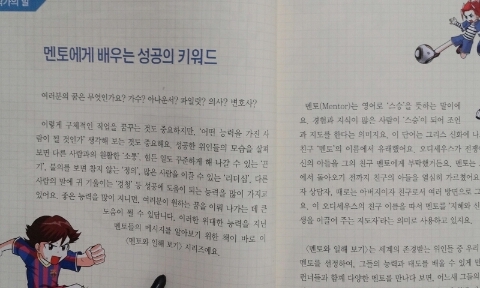 작가의 말
멘토에게 배우는 성공의 키워드
여러분의 꿈은 무엇인가요? 가수? 아나운서? 파일럿? 의사? 변호사?
이렇게 구체적인 직업을 꿈꾸는 것도 중요하지만, '어떤 능력을 가진 사
람이 될 것인가' 생각해 보는 것도 중요해요. 성공한 위인들의 모습을 살펴
보면 다른 사람과의 원활한 '소통', 힘든 일도 구준하게 해 나갈 수 있는 '끈
기', 불의를 보면 참지 않는 '정의', 많은 사람을 이끌 수 있는 '리더십', 다른
사람의 말에 귀 기울이는 '경청' 등 성공에 도움이 되는 능력을 많이 가지고
있어요. 좋은 능력을 많이 지니면, 여러분이 원하는 꿈을 이뤄 나가는 데 큰
도움이 될 수 있답니다. 이러한 위대한 능력을 지닌
멘토들의 메시지를 알아보기 위한 책이 바로 이
〈멘토와 인해 보기〉 시리즈예요.
멘토(Mentor)는 영어로 '스승'을 뜻하는 말이에
요. 경험과 지식이 많은 사람이 '스승'이 되어 조언
과 지도를 한다는 의미지요. 이 단어는 그리스 신화에 나
친구 '멘토'의 이름에서 유래했어요. 오디세우스가 전쟁
신의 아들을 그의 친구 멘토에게 부탁했거든요. 멘토는
에서 돌아오기 전까지 친구의 아들을 열심히 가르쳤어요
자 상담자, 때로는 아버지이자 친구로서 여러 방면으로 그
요. 이 오디세우스의 친구 이름을 따서 멘토를 '지혜와 신
생을 이끌어 주는 지도자'라는 의미로 사용하고 있지요.
〈멘토와 인해 보기〉는 세계의 존경받는 위인들 중 우리
멘토를 선정하여, 그들의 능력과 태도를 배울 수 있게
린너들과 함께 다양한 멘토를 만나다 보면, 어느새 그들의